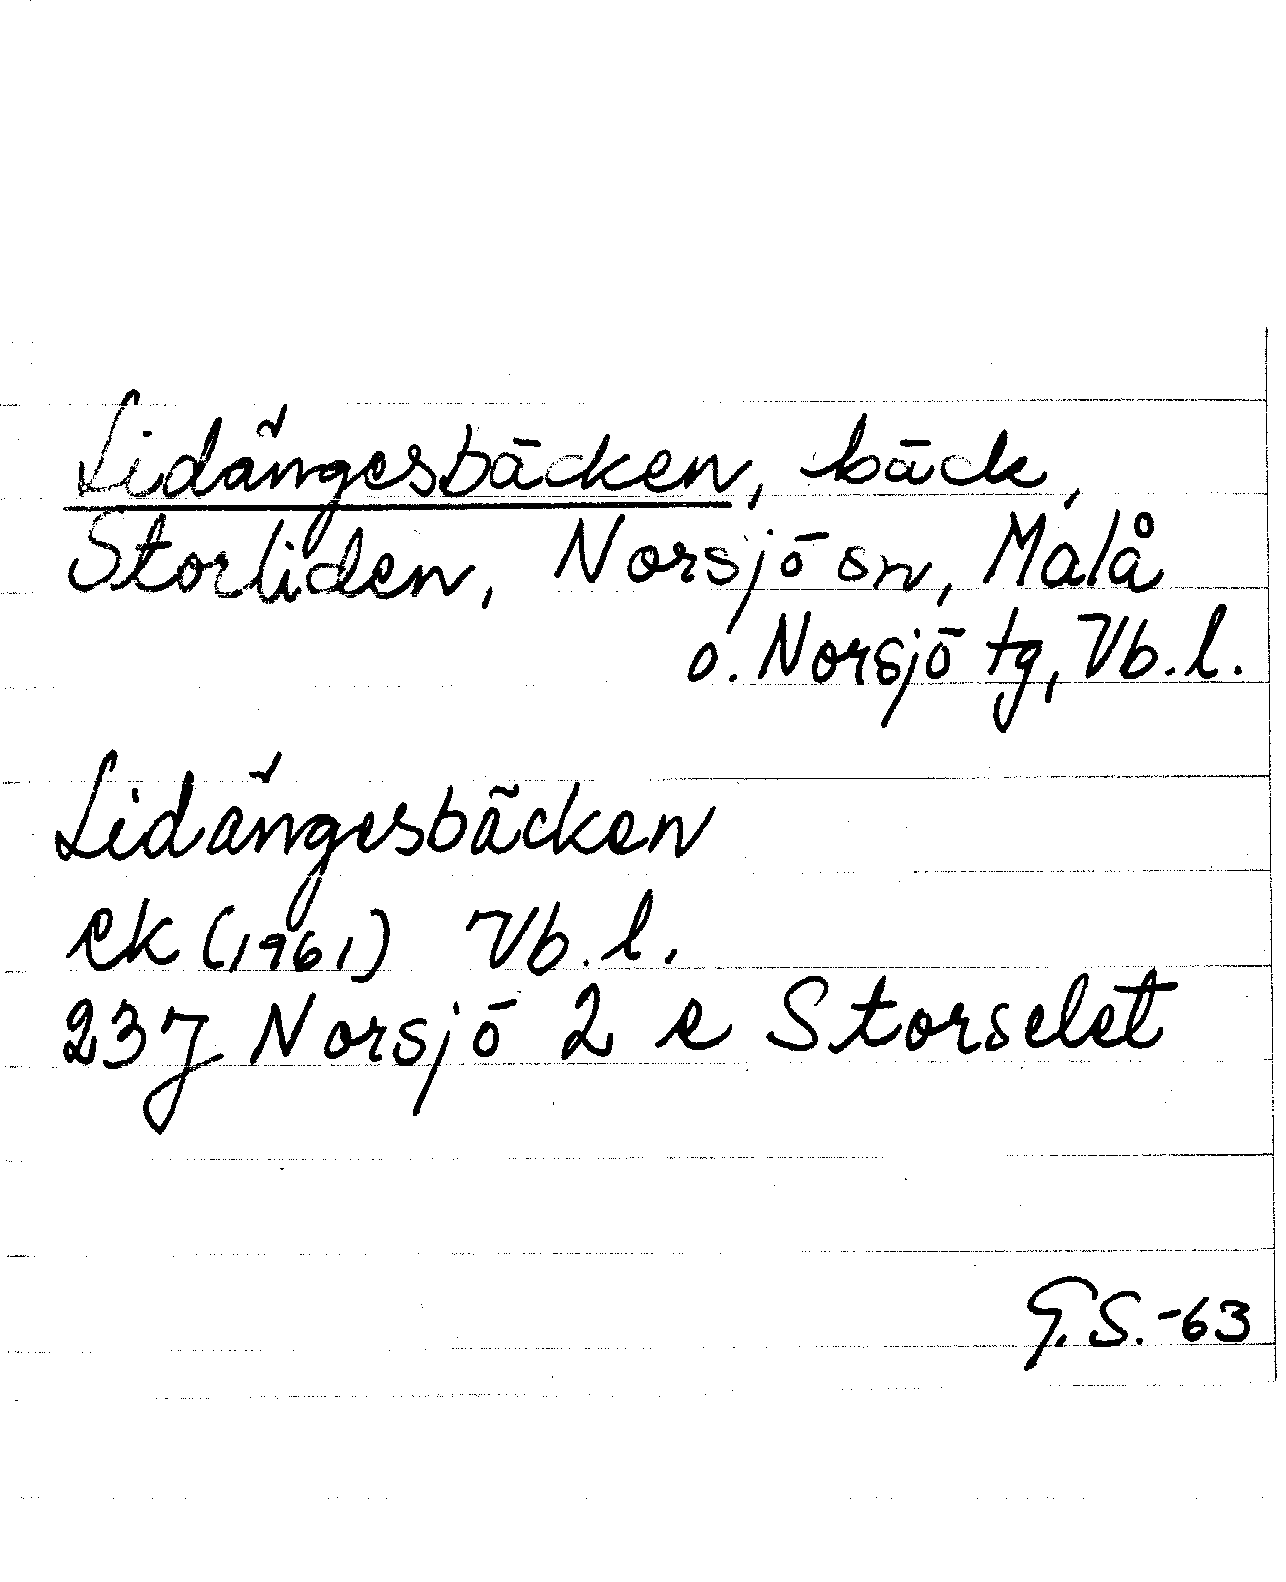 Lidängesbäcken, bäck,
Storliden, Norsjö sn, Malå
o. Norsjö tg, Vb. l.
Lidängesbäcken
ek (1961) Vb. l.
23J Norsjö 2 e Storselet
G.S.-63